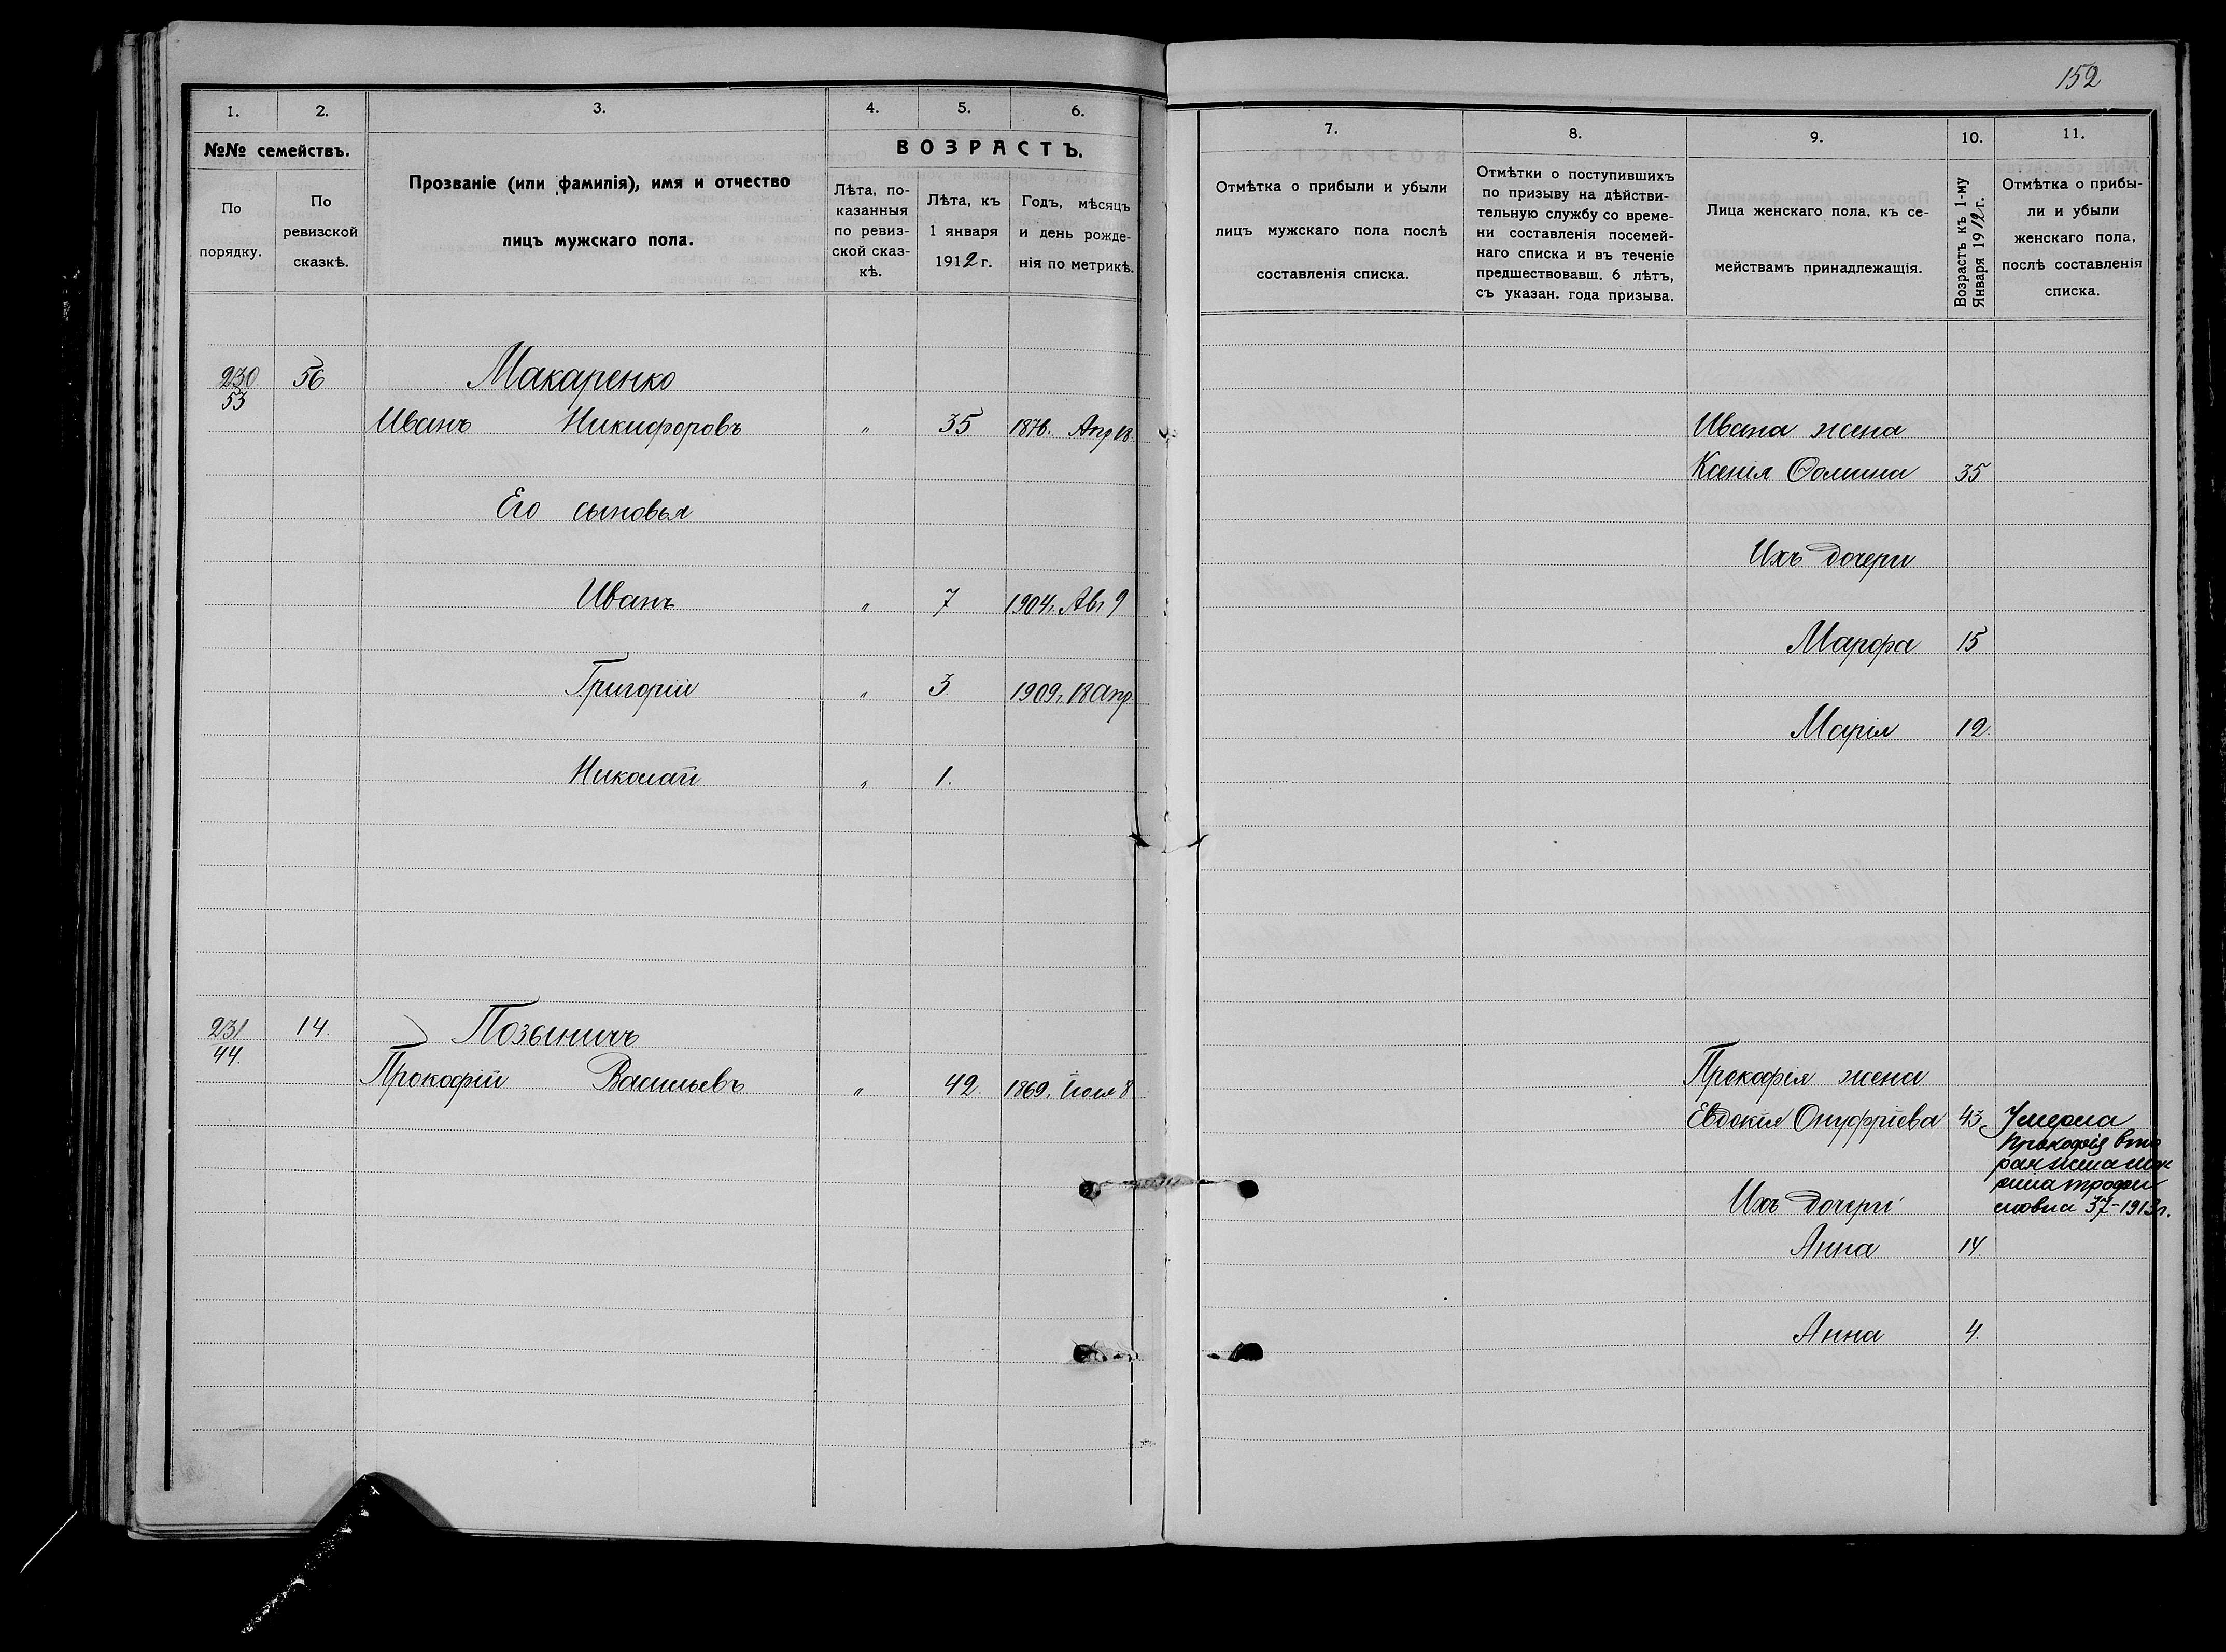 152
1. 2. 3. 4. 5. 6.
№№ семействъ.
По порядку.
По ревизской сказкѣ.
Прозваніе (или фамилія), имя и отчество
лицъ мужскаго пола.
ВОЗРАСТЪ.
Лѣта, по-
казанныя
по ревиз-
ской сказ-
кѣ.
Лѣта, къ
1 января
1912 г.
Годъ, мѣсяцъ
и день рожде-
нія по метрикѣ.
7. 8. 9. 10. 11.
Отмѣтка о прибыли и убыли
лицъ мужского пола послѣ
составленія списка.
Отмѣтки о поступившихъ
по призыву на дѣйстви-
тельную службу со време-
ни составленія посемей-
наго списка и въ теченіе
предшествовавш. 6 лѣтъ,
съ указан. года призыва.
Лица женскаго пола, къ се-
мействамъ принадлежащія.
Возрастъ къ 1-му
Января 1912 г.
Отмѣтка о прибы-
ли и убыли
женскаго пола,
послѣ составленія
списка.
230 56 Макаренко
53
Иванъ Никифоровъ " 35 1876. Апр 18 Ивана жена
Ксенія Ѳомина 35
Его сыновья
Ихъ дочери
Иванъ " 7 1904 г. Авг 9
Марфа 15
Григорій " 3 1909 г. 18 апр
Марія 12.
Николай " 1.
231 14. Позыничъ
44.
Прокофій Васильевъ " 42. 1869. Іюля 8 Прокофія жена
Евдокія Онуфріева 43 Умерла
Прокофія вто
рая жена
словна 37-1913 г.
Ихъ дочери
Анна 14
Анна 4.